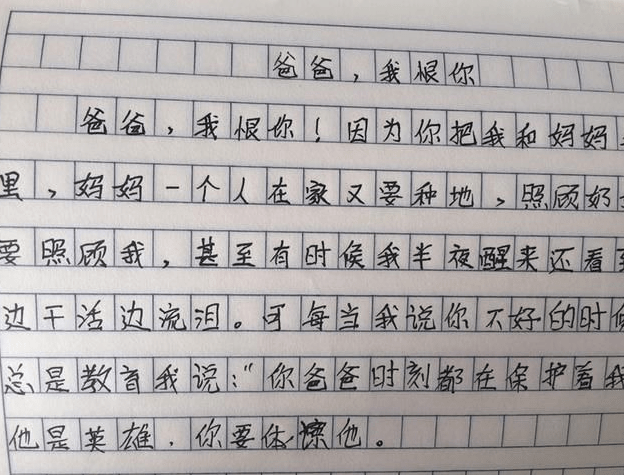 爸爸，我恨你
爸爸，我恨你！因为你把我和妈妈
里，妈妈一个人在家又要种地，照顾奶
要照顾我，甚至有时候我半夜醒来还看到
边干活边流泪。可每当我说你不好的时候
总是教育我说：“你爸爸时刻都在保护着我
他是英雄，你要体谅他。